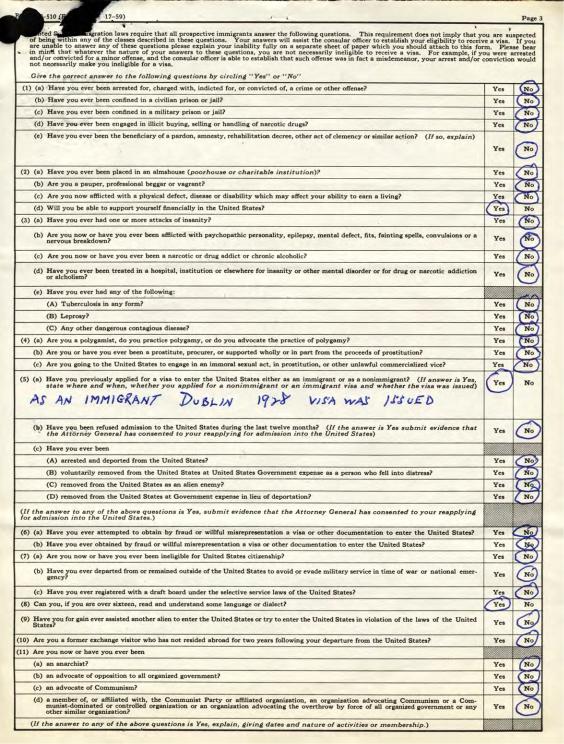 -510 17-59) Page 3
migration laws require all prospective immigrants answer the following questions. This requirement does not imply that you are suspected
of being within any of the classes described in these questions. Your answers will assist the consular officer to establish your eligibility to receive a visa. If you
are unable to answer any of these questions please explain your inability fully on a separate sheet of paper which you should attach to this form. Please bear
in mind that whatever the nature of your answers to these questions, you are not necessarily ineligible to receive a visa. For example, if you were arrested
and/or convicted for a minor offense, and the consular officer is able to establish that such offense was in fact a misdemeanor, your arrest and/or conviction would
not necessarily make you ineligible for a visa.
Give the correct answer to the following questions by circling "Yes" or "No"
(1) (a) Have you ever been arrested for, charged with, indicted for, or convicted of, a crime or other offense? Yes No
(b) Have you ever been confined in a civilian prison or jail? Yes No
(c) Have you ever been confined in a military prison or jail? Yes No
(d) Have you ever been engaged in illicit buying, selling or handling of narcotic drugs? Yes No
(e) Have you ever been the beneficiary of a pardon, amnesty, rehabilitation decree, other act of clemency or similar action? (If so, explain) Yes No
(2) (a) Have you ever been placed in an almshouse (poorhouse or charitable institution)? Yes No
(b) Are you a pauper, professional beggar or vagrant? Yes No
(c) Are you now afflicted with a physical defect, disease or disability which may affect your ability to earn a living? Yes No
(d) Will you be able to support yourself financially in the United States? Yes No
(3) (a) Have you ever had one or more attacks of insanity? Yes No
(b) Are you now or have you ever been afflicted with psychopathic personality, epilepsy, mental defect, fits, fainting spells, convulsions or a
nervous breakdown? Yes No
(c) Are you now or have you ever been a narcotic or drug addict or chronic alcoholic? Yes No
(d) Have you ever been treated in a hospital, institution or elsewhere for insanity or other mental disorder or for drug or narcotic addiction
or alcholism? Yes No
(e) Have you ever had any of the following:
(A) Tuberculosis in any form? Yes No
(B) Leprosy? Yes No
(C) Any other dangerous contagious disease? Yes No
(4) (a) Are you a polygamist, do you practice polygamy, or do you advocate the practice of polygamy? Yes No
(b) Are you or have you ever been a prostitute, procurer, or supported wholly or in part from the proceeds of prostitution? Yes No
(c) Are you going to the United States to engage in an immoral sexual act, in prostitution, or other unlawful commercialized vice? Yes No
(5) (a) Have you previously applied for a visa to enter the United States either as an immigrant or as a nonimmigrant? (If answer is Yes,
state where and when, whether you applied for a nonimmigrant or an immigrant visa and whether the visa was issued) Yes No
AS AN IMMIGRANT DUBLIN 1928 VISA WAS ISSUED
(b) Have you been refused admission to the United States during the last twelve months? (If the answer is Yes submit evidence that
the Attorney General has consented to your reapplying for admission into the United States) Yes No
(c) Have you ever been
(A) arrested and deported from the United States? Yes No
(B) voluntarily removed from the United States at United States Government expense as a person who fell into distress? Yes No
(C) removed from the United States as an alien enemy? Yes No
(D) removed from the United States at Government expense in lieu of deportation? Yes No
(If the answer to any of the above questions is Yes, submit evidence that the Attorney General has consented to your reapplying
for admission into the United States.)
(6) (a) Have you ever attempted to obtain by fraud or willful misrepresentation a visa or other documentation to enter the United States? Yes No
(b) Have you ever obtained by fraud or willful misrepresentation a visa or other documentation to enter the United States? Yes No
(7) (a) Are you now or have you ever been ineligible for United States citizenship? Yes No
(b) Have you ever departed from or remained outside of the United States to avoid or evade military service in time of war or national emer-
gency? Yes No
(c) Have you ever registered with a draft board under the selective service laws of the United States? Yes No
(8) Can you, if you are over sixteen, read and understand some language or dialect? Yes No
(9) Have you for gain ever assisted another alien to enter the United States or try to enter the United States in violation of the laws of the United
States? Yes No
(10) Are you a former exchange visitor who has not resided abroad for two years following your departure from the United States? Yes No
(11) Are you now or have you ever been
(a) an anarchist? Yes No
(b) an advocate of opposition to all organized government? Yes No
(c) an advocate of Communism? Yes No
(d) a member of, or affiliated with, the Communist Party or affiliated organization, an organization advocating Communism or a Com-
munist-dominated or controlled organization or an organization advocating the overthrow by force of all organized government or any
other similar organization? Yes No
(If the answer to any of the above questions is Yes, explain, giving dates and nature of activities or membership.)